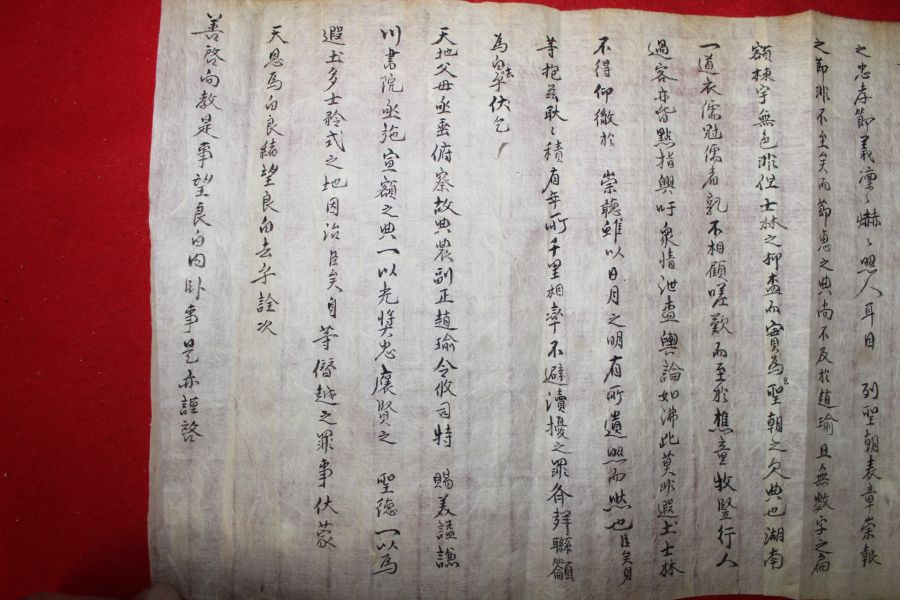 之忠孝節義凜〻赫〻照人耳目 列聖朝表章崇報
之節非不至矣而節惠之典尚不及於趙瑜且無數字之扁
額棟宇無色非但士林之抑菀而實為聖朝之欠典也湖南
一道衣儒冠儒者孰不相顧嗟歎而至於樵童牧竪行人
過客亦皆點指興吁衆情泄菀輿論如沸此莫非遐土士林
不得仰徹於 崇聽雖以日月之明有所遺照而然也臣矣身
等抱玆耿〻積有年所千里相率不避瀆擾之罪各
為白去乎伏乞
天地父母亟垂俯察故典農副正趙瑜令攸司特 賜美諡謙
川書院亟施宣額之典一以光奬忠襃賢之 聖德一以為
遐土多士矜式之地因治臣矣身等僭越之罪事伏蒙
天恩為白良結望良白去乎詮次
善啓向敎是事望良白內臥事是亦謹啓